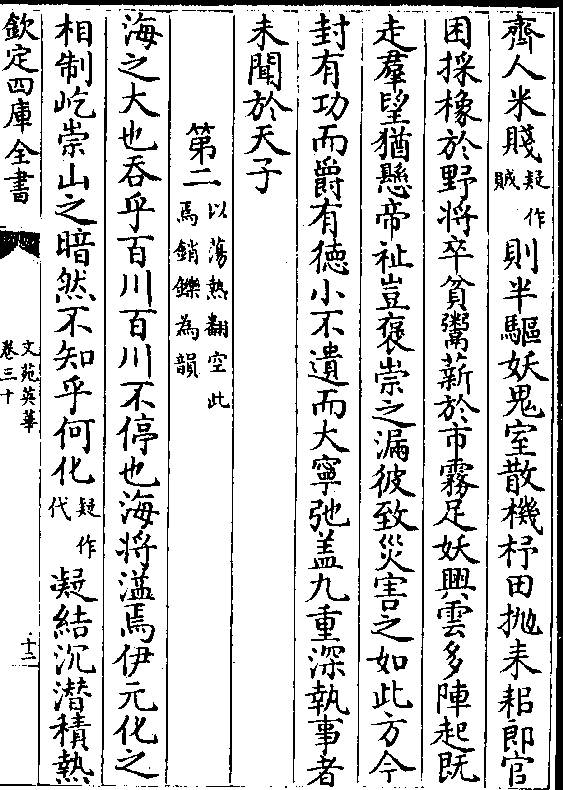 齊人米賤疑作賊則半驅妖鬼室散機杼田抛耒耜郎官
困採橡於野将卒貧鬻薪於市霧足妖興雲多陣起既
走羣望猶懸帝祉豈褒崇之漏彼致災害之如此方今
封有功而爵有徳小不遺而大寧弛盖九重深執事者
未聞於天子
第二以蕩熱翻空此焉銷鑠為韻
海之大也吞乎百川百川不停也海将溢焉伊元化之
相制屹崇山之暗然不知乎何化疑作代凝結沉潜積熱
欽定四庫全書
文苑英華
卷三十
十二